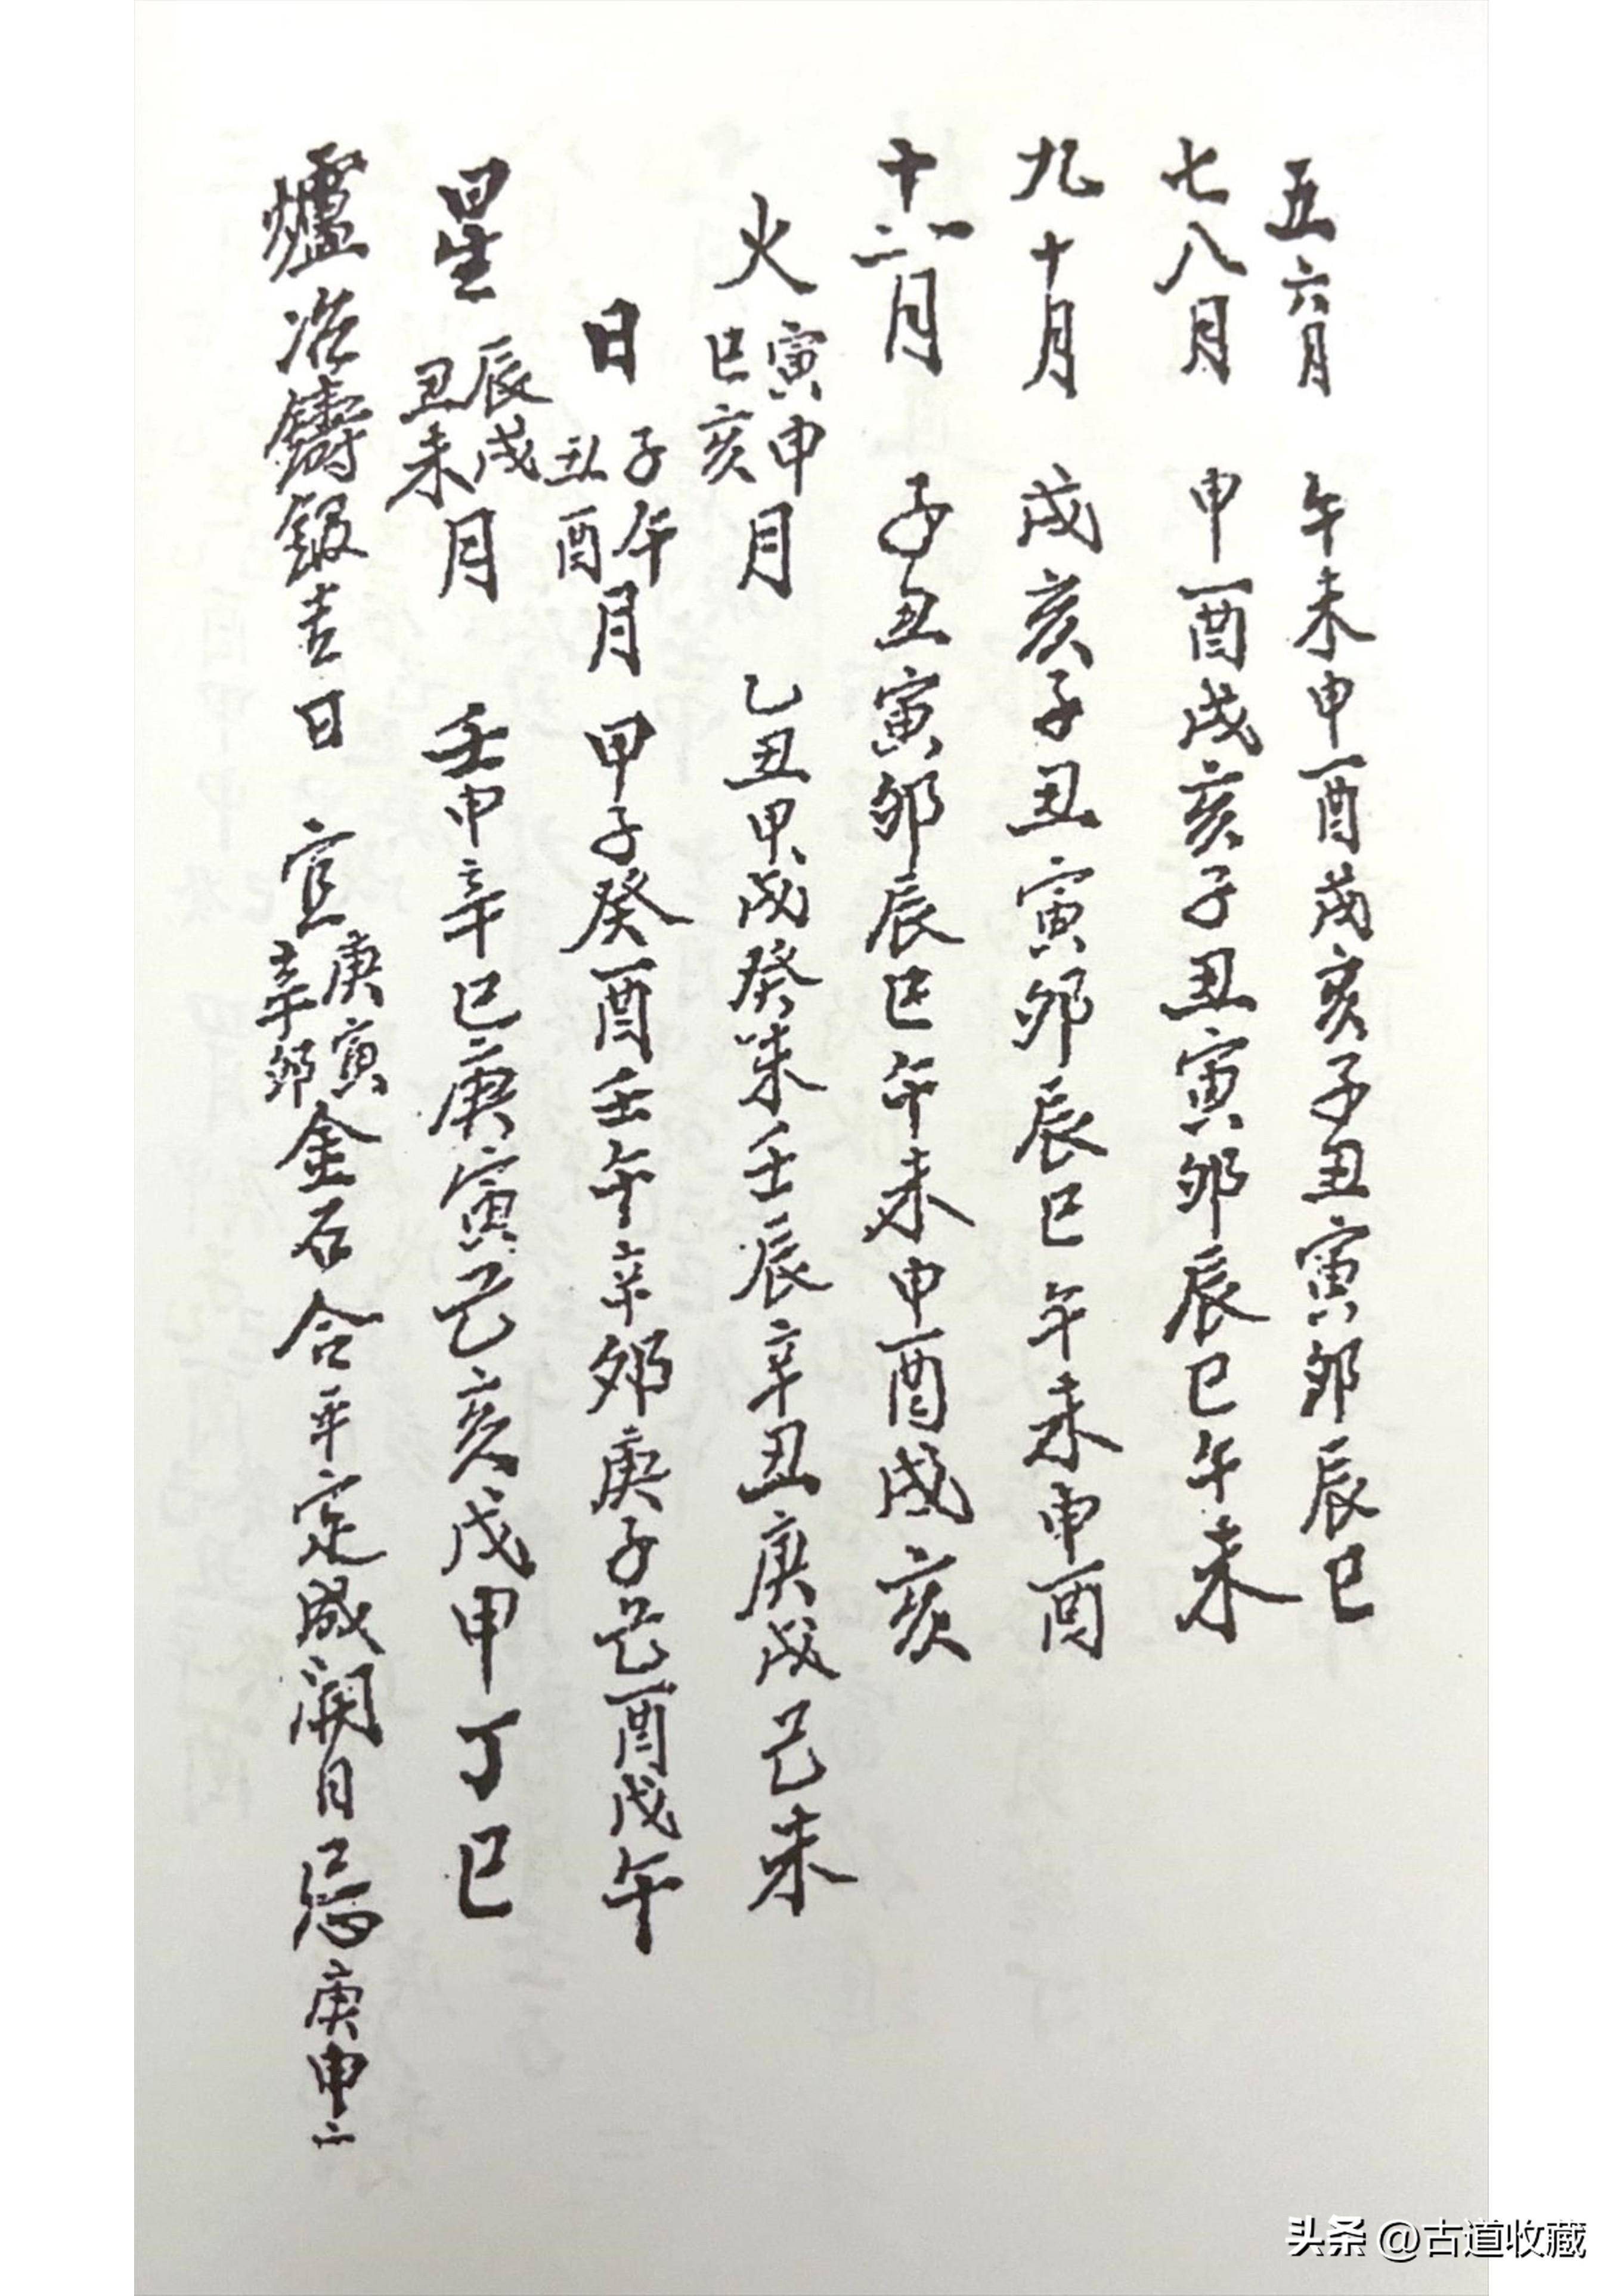 五六月 午未申酉戌亥子丑寅卯辰巳
七八月 申酉戌亥子丑寅卯辰巳午未
九十月 戌亥子丑寅卯辰巳午未申酉
十一二月 子丑寅卯辰巳午未申酉戌亥
火 寅申巳亥月 乙丑甲戌癸未壬辰辛丑庚戌己未
日 子午丑酉月 甲子癸酉壬午辛卯庚子己酉戊午
星 辰戌丑未月 壬申辛巳庚寅己亥戊申丁巳
爐冶鑄銀吉日 宜庚寅辛卯金石合平定成開日忌庚申二
头条 @古道收藏